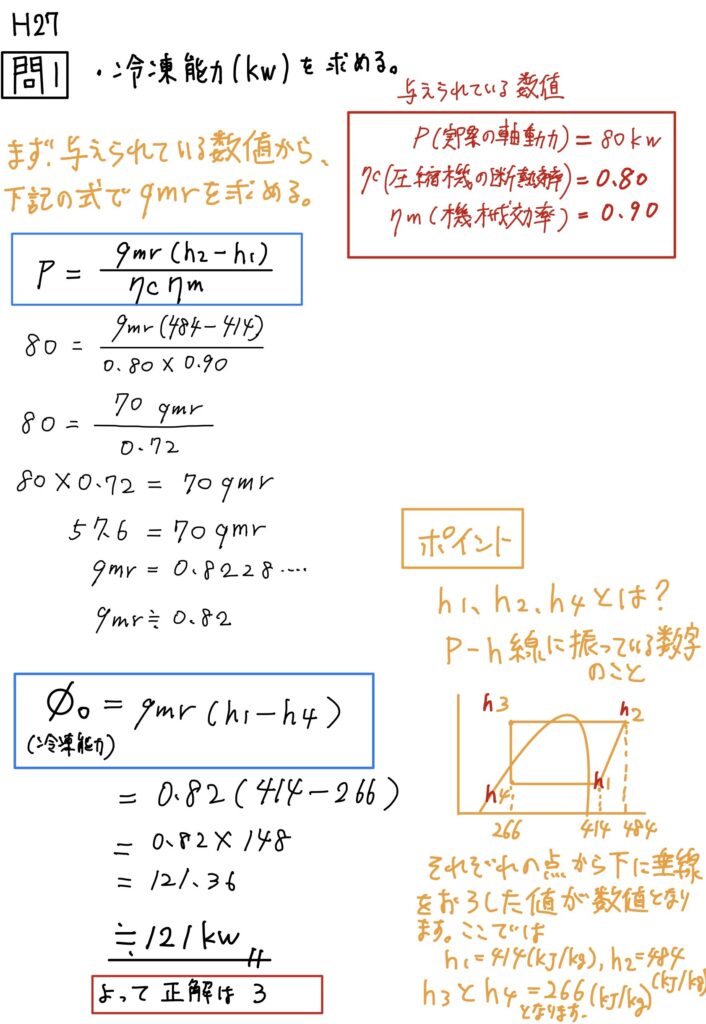 H27
問1 ・冷凍能力(kw)を求める。
与えられている数値
P(実際の軸動力)=80kw
ηc(圧縮機の断熱効率)=0.80
ηm(機械効率)=0.90
まず与えられている数値から、
下記の式でqmrを求める。
P = qmr(h2-h1) / ηc ηm
80 = qmr(484-414) / 0.80×0.90
80 = 70 qmr / 0.72
80×0.72 = 70qmr
57.6 = 70qmr
qmr = 0.8228....
qmr≒0.82
Φ₀ = qmr(h1-h4)
(冷凍能力)
= 0.82(414-266)
= 0.82×148
= 121.36
≒121kw
よって正解は 3
ポイント
h1、h2、h4とは?
P-h線に振っている数字
のこと
h3
h2
h4
h1
266
414
484
それぞれの点から下に垂線
をおろした値が数値となり
ます。ここでは
h1=414(kJ/kg), h2=484
(kJ/kg)
h3とh4=266(kJ/kg)
となります。